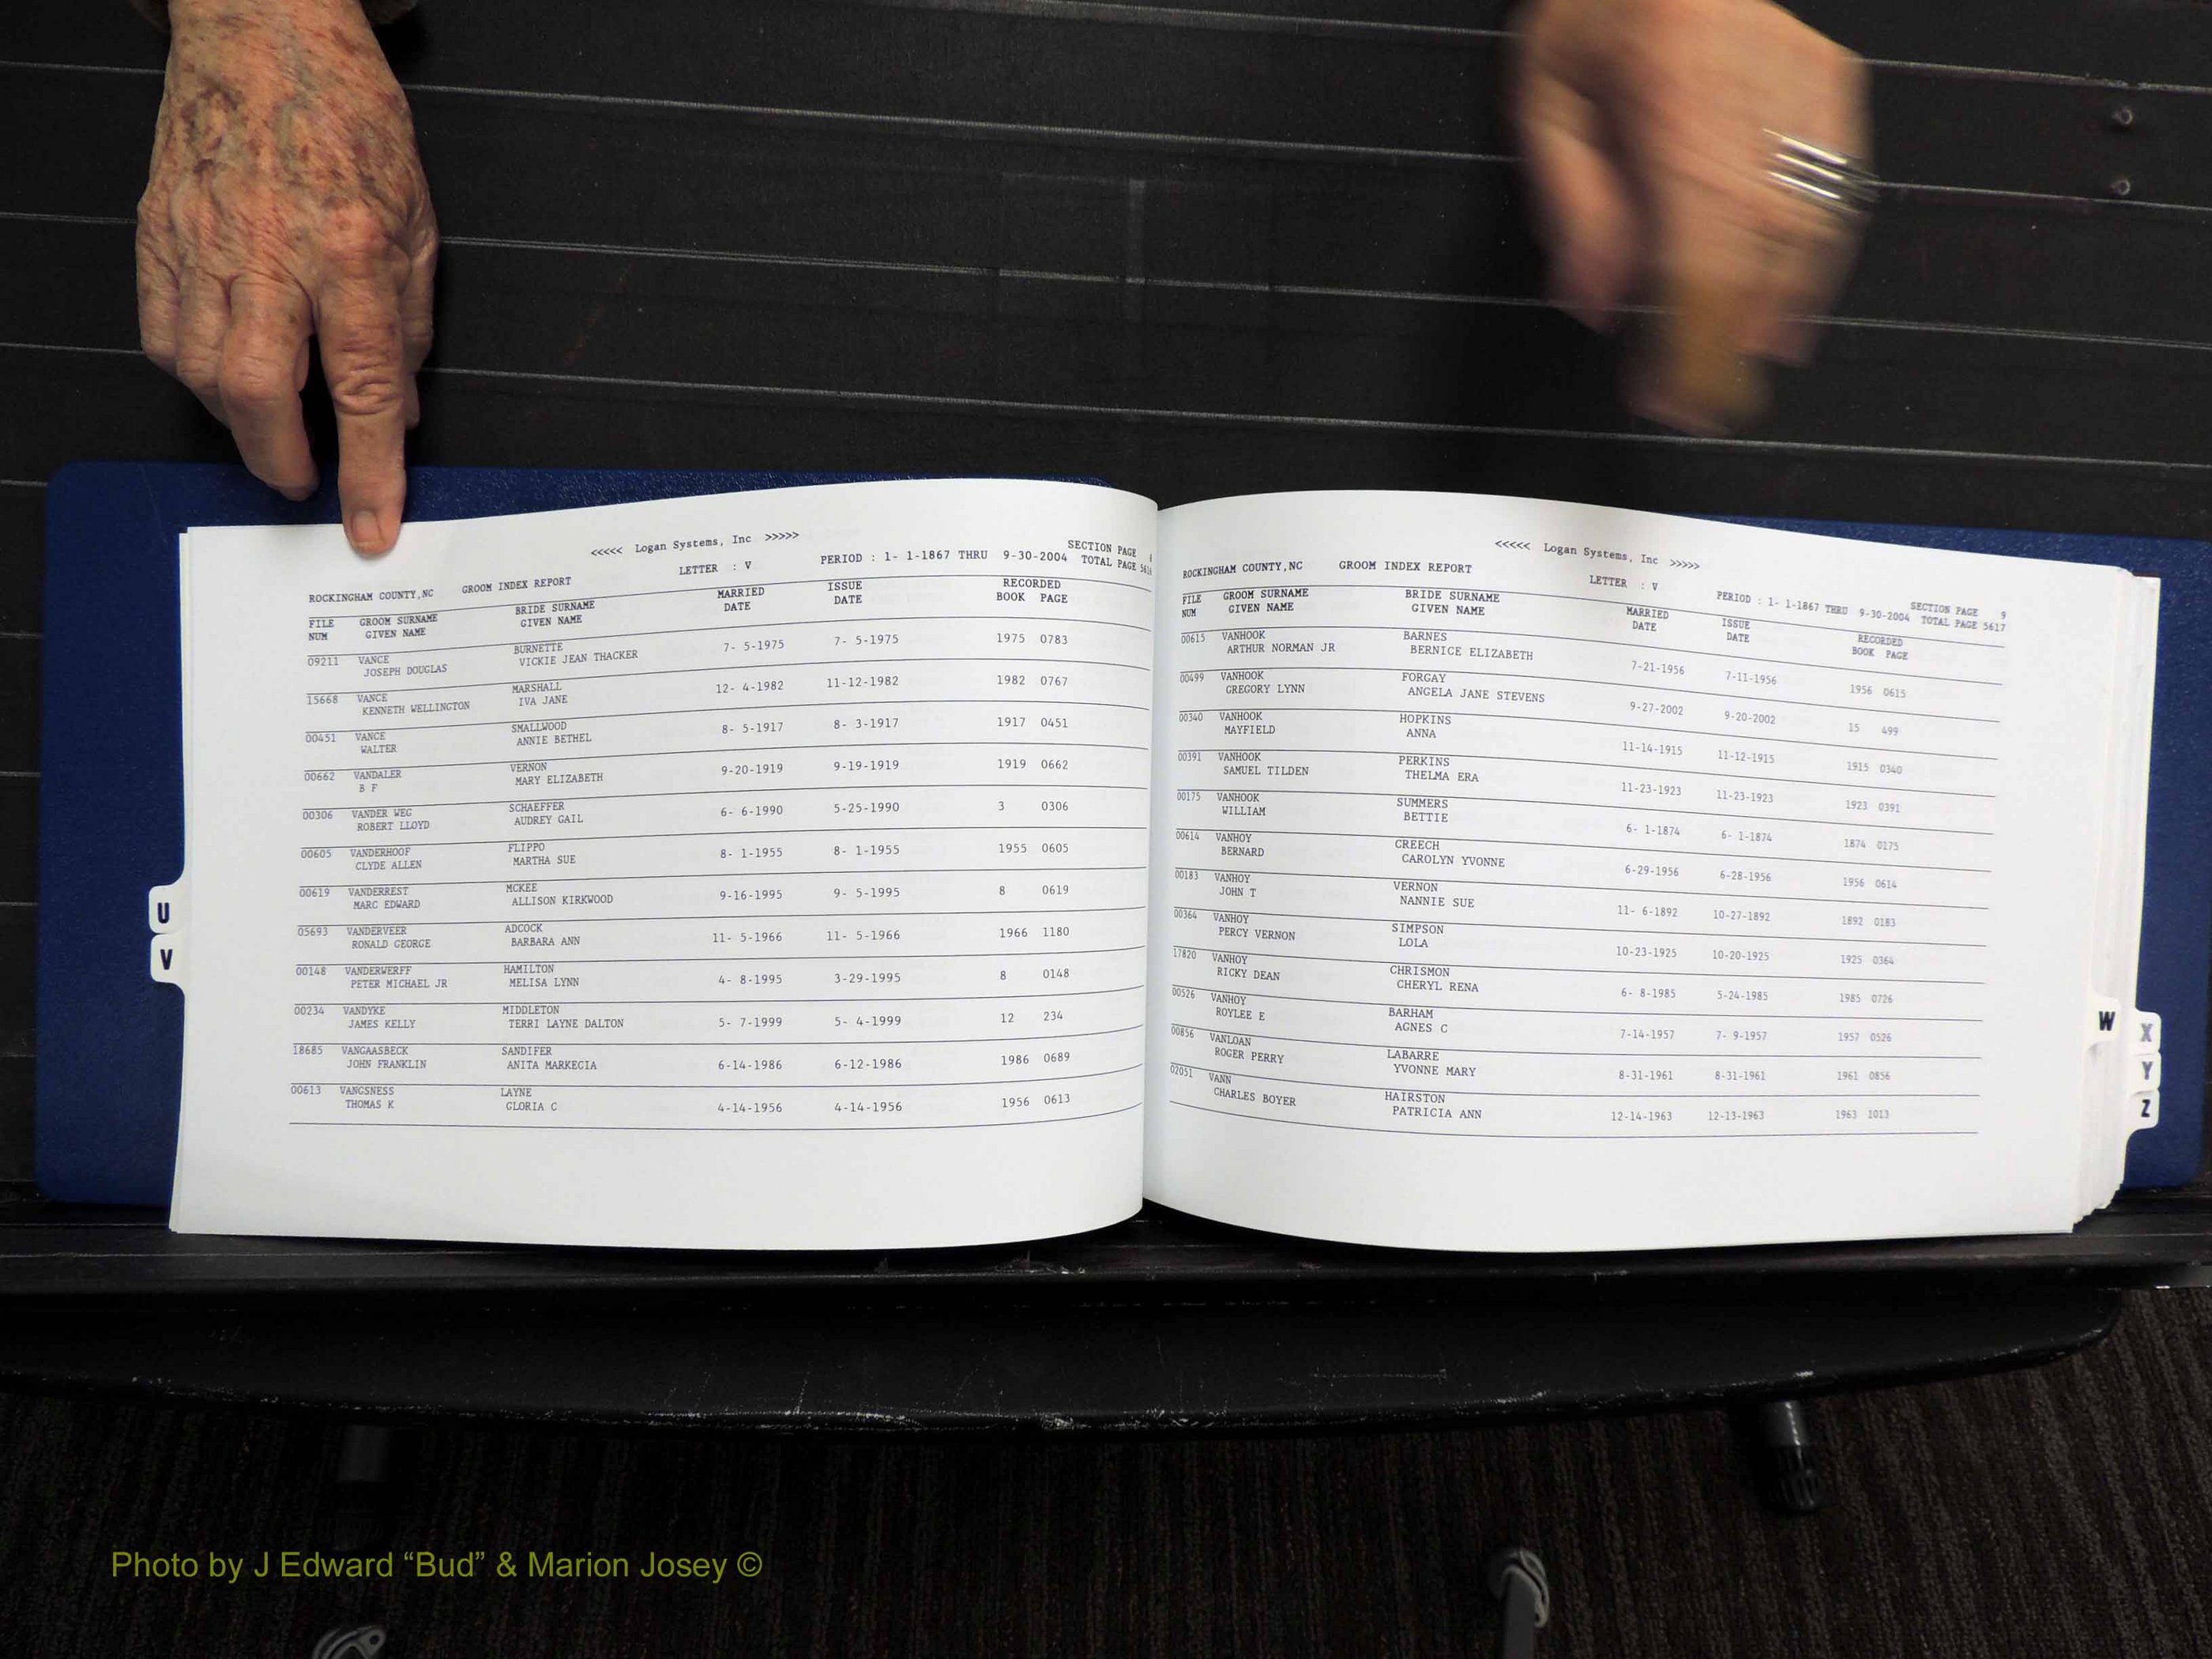 <<<<< Logan Systems, Inc >>>>>
SECTION PAGE
ROCKINGHAM COUNTY,NC GROOM INDEX REPORT LETTER : V PERIOD : 1- 1-1867 THRU 9-30-2004 TOTAL PAGE
FILE GROOM SURNAME BRIDE SURNAME MARRIED ISSUE RECORDED
NUM GIVEN NAME GIVEN NAME DATE DATE BOOK PAGE
09211 VANCE BURNETTE 7- 5-1975 7- 5-1975 1975 0783
JOSEPH DOUGLAS VICKIE JEAN THACKER
15668 VANCE MARSHALL 12- 4-1982 11-12-1982 1982 0767
KENNETH WELLINGTON IVA JANE
00451 VANCE SMALLWOOD 8- 5-1917 8- 3-1917 1917 0451
WALTER ANNIE BETHEL
00662 VANDALER VERNON 9-20-1919 9-19-1919 1919 0662
B F MARY ELIZABETH
00306 VANDER WEG SCHAEFFER 6- 6-1990 5-25-1990 3 0306
ROBERT LLOYD AUDREY GAIL
00605 VANDERHOOF FLIPPO 8- 1-1955 8- 1-1955 1955 0605
CLYDE ALLEN MARTHA SUE
00619 VANDERREST MCKEE 9-16-1995 9- 5-1995 8 0619
MARC EDWARD ALLISON KIRKWOOD
05693 VANDERVEER ADCOCK 11- 5-1966 11- 5-1966 1966 1180
RONALD GEORGE BARBARA ANN
00148 VANDERWERFF HAMILTON 4- 8-1995 3-29-1995 8 0148
PETER MICHAEL JR MELISA LYNN
00234 VANDYKE MIDDLETON 5- 7-1999 5- 4-1999 12 234
JAMES KELLY TERRI LAYNE DALTON
18685 VANGAASBECK SANDIFER 6-14-1986 6-12-1986 1986 0689
JOHN FRANKLIN ANITA MARKECIA
00613 VANGSNESS LAYNE 4-14-1956 4-14-1956 1956 0613
THOMAS K GLORIA C
U
V
<<<<< Logan Systems, Inc >>>>>
SECTION PAGE 9
ROCKINGHAM COUNTY,NC GROOM INDEX REPORT LETTER : V PERIOD : 1- 1-1867 THRU 9-30-2004 TOTAL PAGE 5617
FILE GROOM SURNAME BRIDE SURNAME MARRIED ISSUE RECORDED
NUM GIVEN NAME GIVEN NAME DATE DATE BOOK PAGE
00615 VANHOOK BARNES 7-21-1956 7-11-1956 1956 0615
ARTHUR NORMAN JR BERNICE ELIZABETH
00499 VANHOOK FORGAY 9-27-2002 9-20-2002 15 499
GREGORY LYNN ANGELA JANE STEVENS
00340 VANHOOK HOPKINS 11-14-1915 11-12-1915 1915 0340
MAYFIELD ANNA
00391 VANHOOK PERKINS 11-23-1923 11-23-1923 1923 0391
SAMUEL TILDEN THELMA ERA
00175 VANHOOK SUMMERS 6- 1-1874 6- 1-1874 1874 0175
WILLIAM BETTIE
00614 VANHOY CREECH 6-29-1956 6-28-1956 1956 0614
BERNARD CAROLYN YVONNE
00183 VANHOY VERNON 11- 6-1892 10-27-1892 1892 0183
JOHN T NANNIE SUE
00364 VANHOY SIMPSON 10-23-1925 10-20-1925 1925 0364
PERCY VERNON LOLA
17820 VANHOY CHRISMON 6- 8-1985 5-24-1985 1985 0726
RICKY DEAN CHERYL RENA
00526 VANHOY BARHAM 7-14-1957 7- 9-1957 1957 0526
ROYLEE E AGNES C
00856 VANLOAN LABARRE 8-31-1961 8-31-1961 1961 0856
ROGER PERRY YVONNE MARY
02051 VANN HAIRSTON 12-14-1963 12-13-1963 1963 1013
CHARLES BOYER PATRICIA ANN
W
X
Y
Z
Photo by J Edward “Bud” & Marion Josey ©